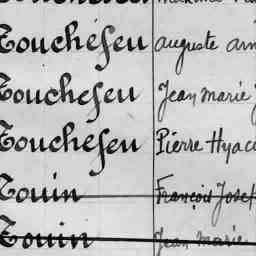 Touchefeu Auguste
Touchefeu Jean Marie
Touchefeu Pierre
Touin François
Touin Jean Marie